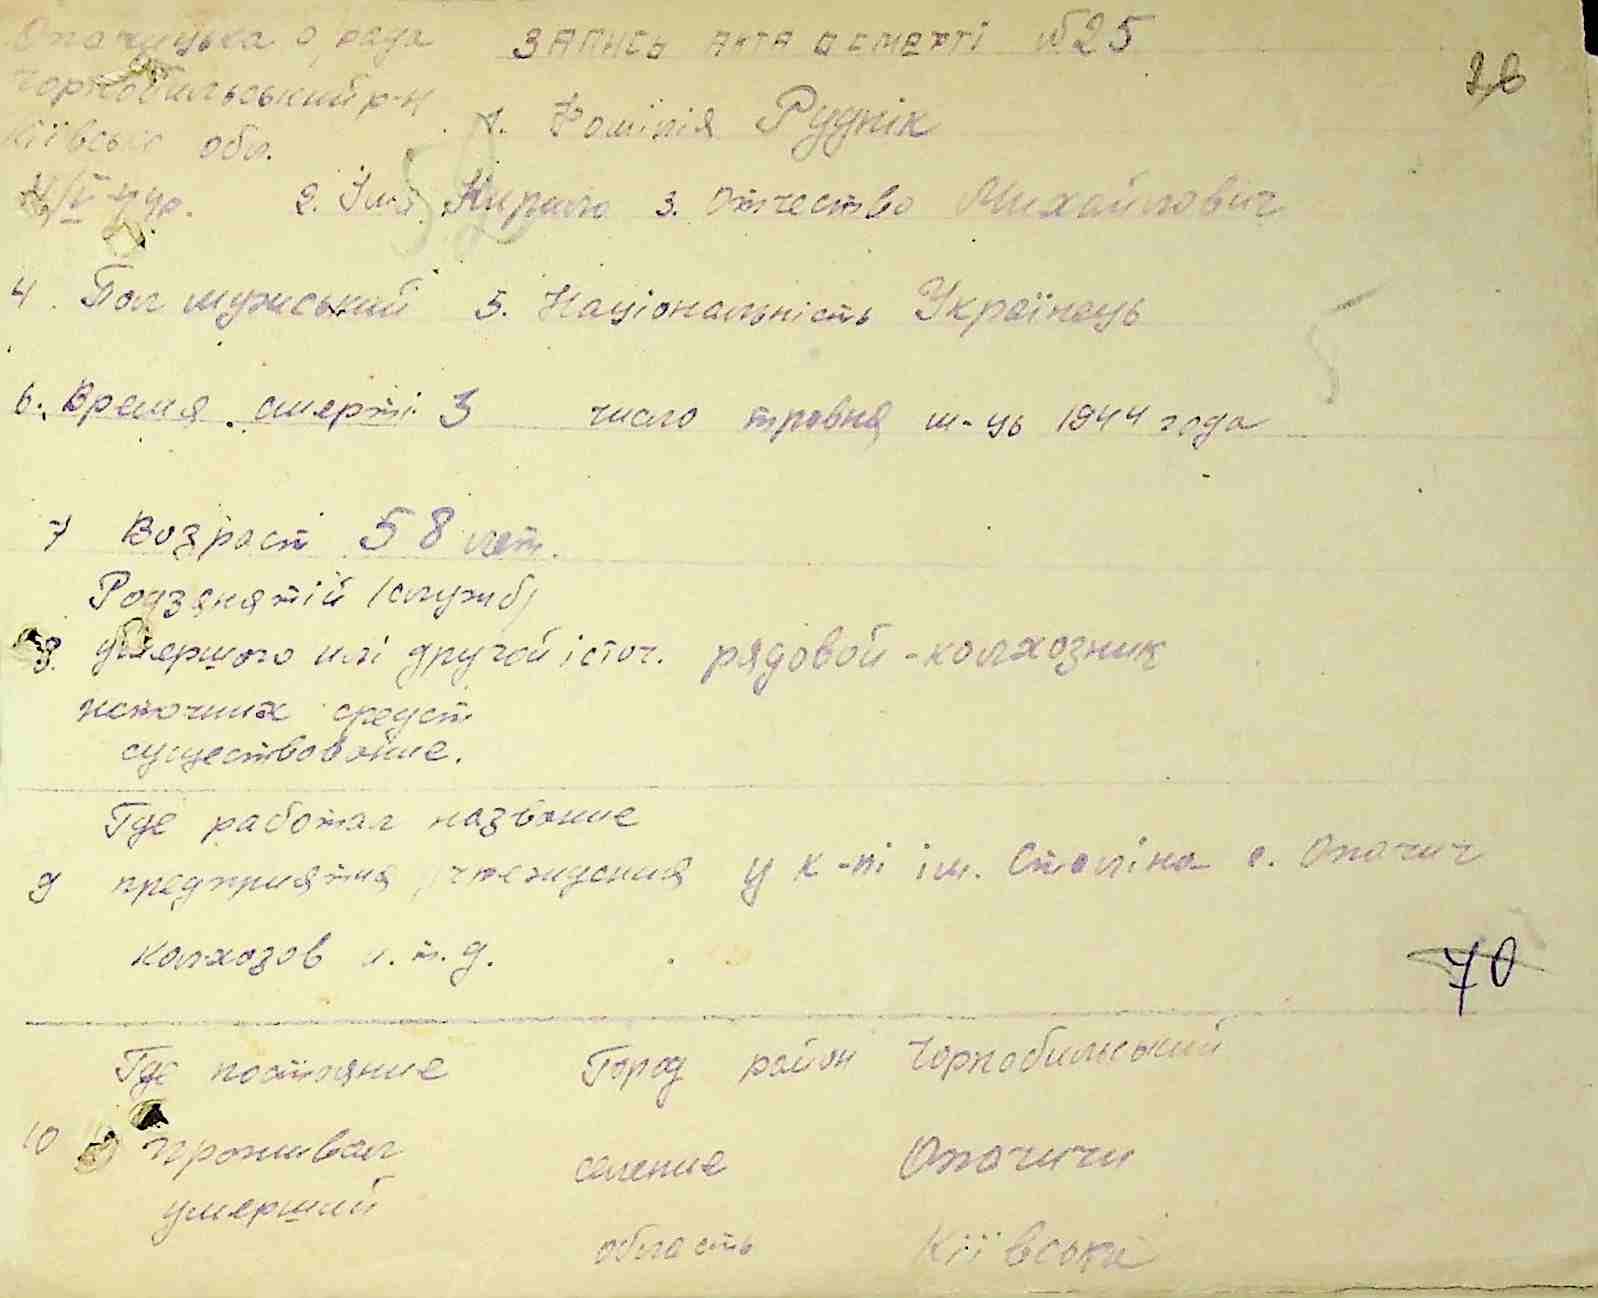 Опачицька с/рада ЗАПИСЬ АКТА О СМЕРТІ №25
Чорнобильський р-н
Київська обл. 1. Фамілія Руднік
2. Імя Кирило 3. Отчество Михайловіч
4. Пол мужський 5. Національність Українець
6. Время смерті 3 число травня м-ць 1944 года
7 Возраст 58 лет.
Родзанятій (служб)
8. умершого илі другой істоч. рядовой-колхозник
источник средст
существование.
Где работал название
9 предприятия учреждения у к-пі ім. Сталіна с. Опачич
колхозов и.т.д.
70
Где постояние Город район Чорнобильський
10 проживал селение Опачичи
умерший
область Київська